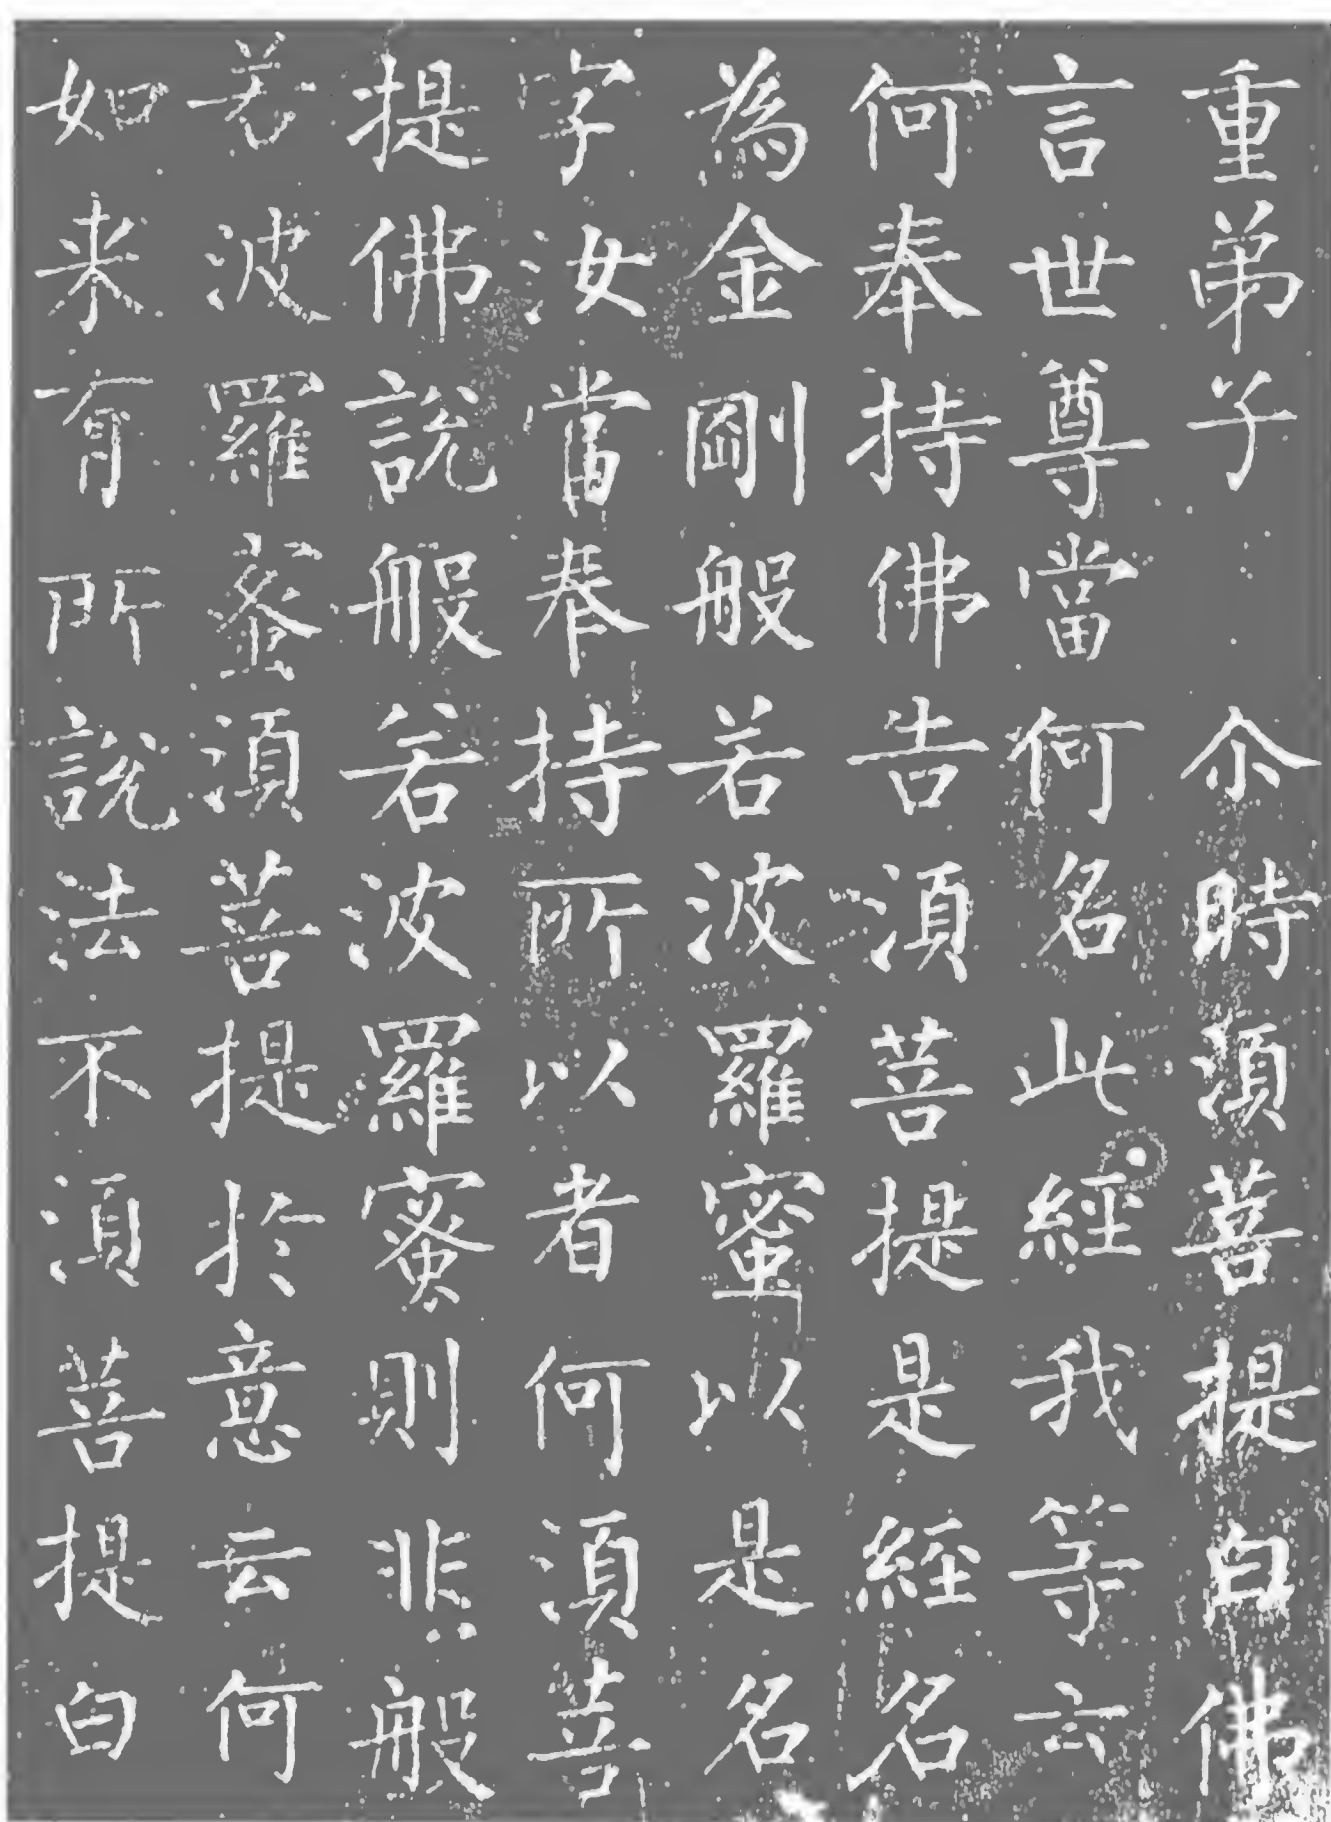 重弟子　尒時須菩提白佛
言世尊當何名此經我等云
何奉持佛告須菩提是經名
為金剛般若波羅蜜以是名
字汝當奉持所以者何須菩
提佛說般若波羅蜜則非般
若波羅蜜須菩提於意云何
如来有所說法不須菩提白